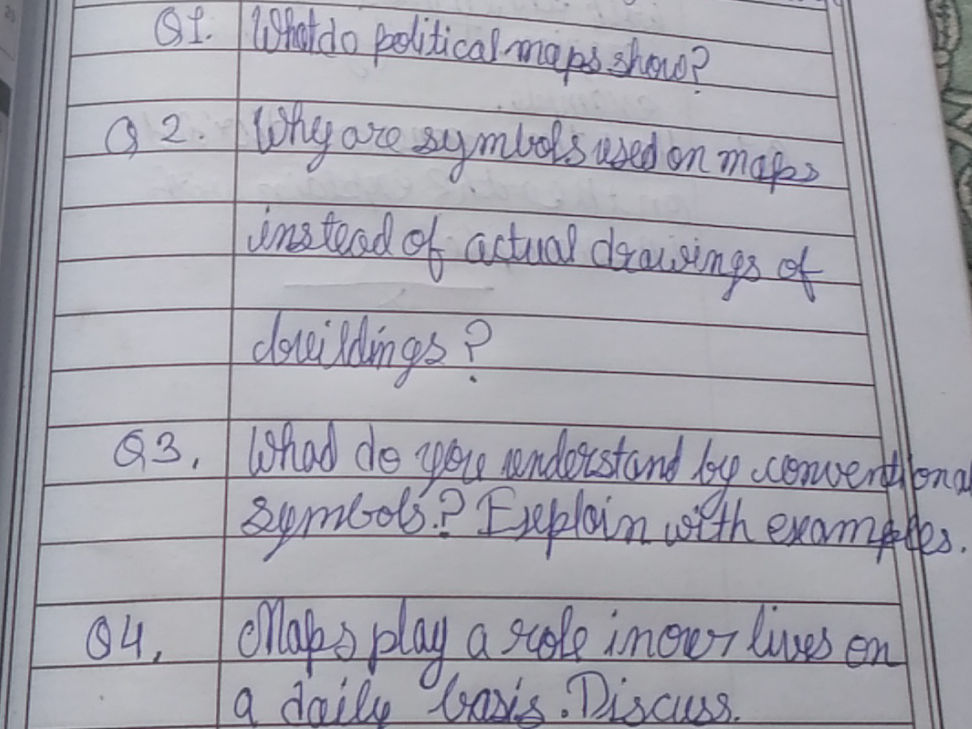 Q1. What do political maps show?
Q 2. Why are symbols used on maps
instead of actual drawings of
buildings?
Q3. What do you understand by conventional
symbols? Explain with examples.
Q4. Maps play a role in our lives on
a daily basis. Discuss.